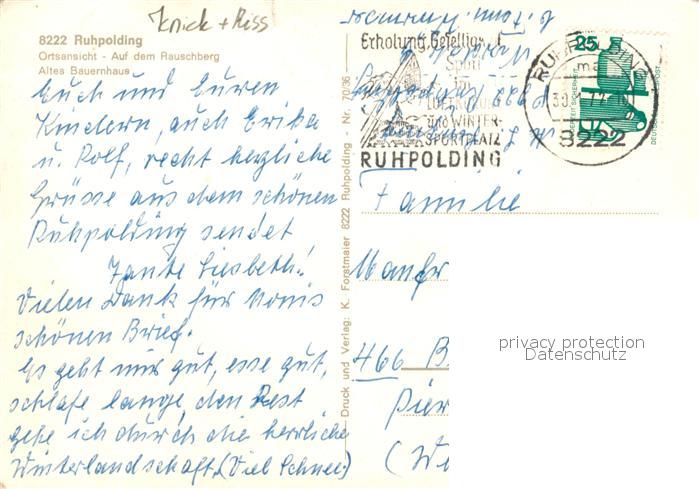 Knick + Riss
8222 Ruhpolding
Ortsansicht - Auf dem Rauschberg
Altes Bauernhaus
Euch und Euren
Kindern, auch Erika
u. Rolf, recht herzliche
Grüsse aus dem schönen
Ruhpolding sendet
Tante Liesbeth!
Vielen Dank für Monis
schönen Brief.
Es geht mir gut, esse gut,
schlafe lange, den Rest
gehe ich durch die herrliche
Winterlandschaft. (Viel Schnee)
Druck und Verlag: K. Forstmaier 8222 Ruhpolding - Nr. 70/36
Erholung, Geselligkeit
Sport
im
LUFTKURORT
und WINTER-
SPORTPLATZ
RUHPOLDING
RUHPOLDING
8222
25
Familie
Manfr
466 B
Pier
(We
privacy protection
Datenschutz